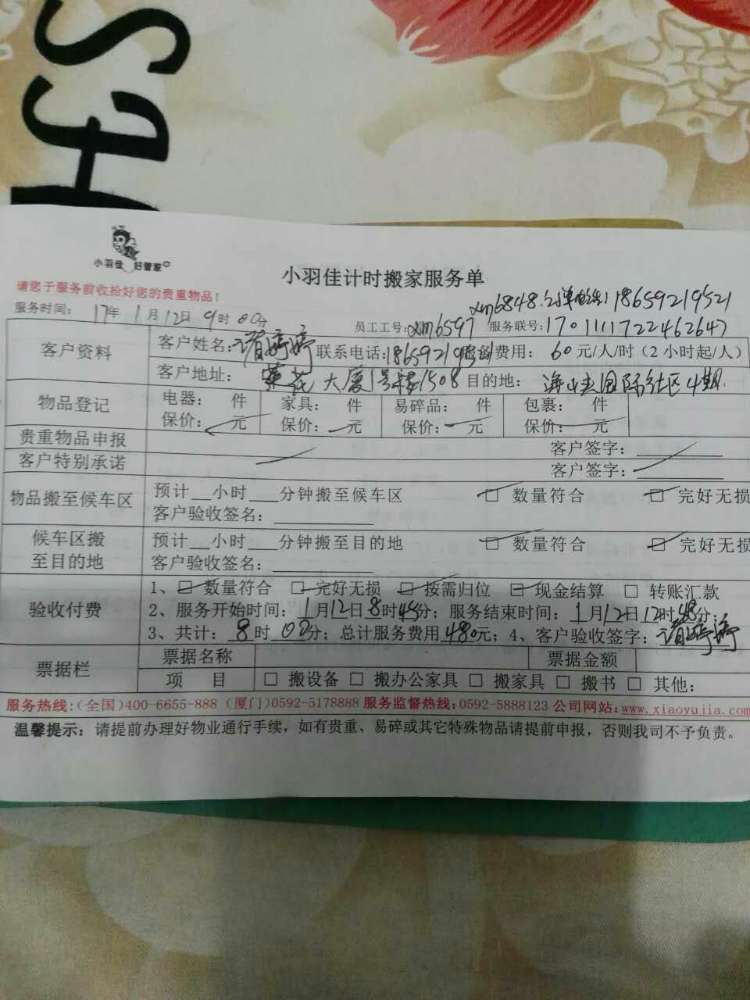 小羽佳 好管家
小羽佳计时搬家服务单
请您于服务前收拾好您的贵重物品!
xm6848 18659219521
服务时间: 17年 1月12日 9时00分
员工工号: xm6597 服务联号: 1701111722462647
客户资料
客户姓名: 联系电话: 费用: 60元/人/时(2小时起/人)
客户地址: 大厦1号楼1508 目的地: 国际社区4期
物品登记
电器: 件 家具: 件 易碎品: 件 包裹: 件
保价: 元 保价: 元 保价: 元 保价: 元
贵重物品申报 客户签字:
客户特别承诺 客户签字:
物品搬至候车区
预计__小时___分钟搬至候车区 数量符合 完好无损
客户验收签名:
候车区搬至目的地
预计__小时___分钟搬至目的地 数量符合 完好无损
客户验收签名:
验收付费
1、数量符合 完好无损 按需归位 现金结算 转账汇款
2、服务开始时间: 1月12日8时45分; 服务结束时间: 1月12日12时48分;
3、共计: 8时00分; 总计服务费用480元; 4、客户验收签字:
票据栏
票据名称 票据金额
项 目 搬设备 搬办公家具 搬家具 搬书 其他:
服务热线:(全国)400-6655-888 (厦门)0592-5178888 服务监督热线:0592-5888123 公司网站:www.xiaoyujia.com
温馨提示: 请提前办理好物业通行手续, 如有贵重、易碎或其它特殊物品请提前申报, 否则我司不予负责。